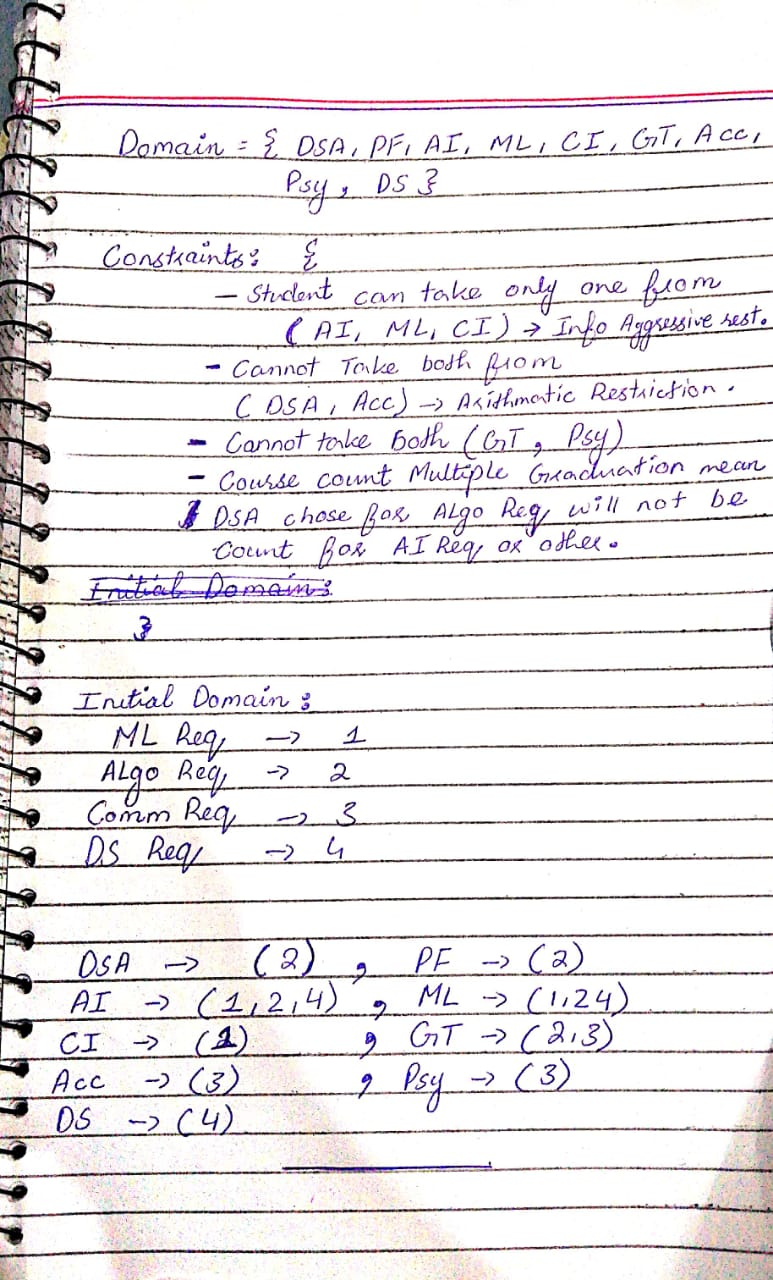 Domain = { DSA, PF, AI, ML, CI, GT, Acc,
Psy, DS }
Constraints: {
- Student can take only one from
( AI, ML, CI ) → Info Aggressive rest.
- Cannot Take both from
( DSA, Acc) → Arithmatic Restriction.
- Cannot take both (GT, Psy)
- Course count Multiple Graduation mean
DSA chose for Algo Req will not be
count for AI Req or other.
Initial Domain:
}
Initial Domain:
ML Req → 1
ALgo Req → 2
Comm Req → 3
DS Req → 4
DSA → (2) , PF → (2)
AI → (1,2,4) , ML → (1,24)
CI → (1) , GT → (2,3)
Acc → (3) , Psy → (3)
DS → (4)